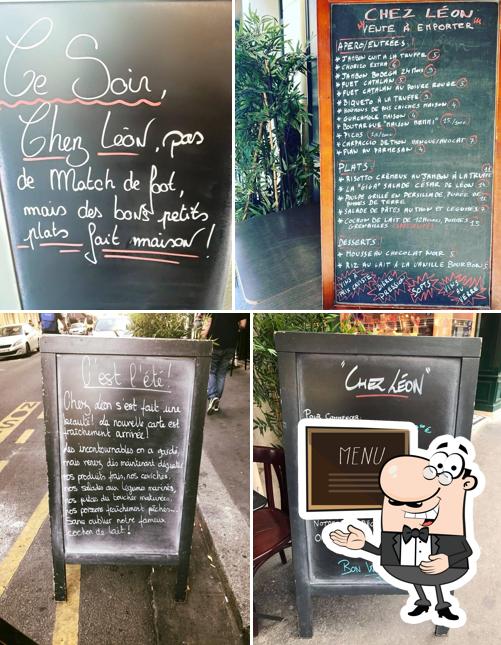 Ce Soir,
Chez Léon, pas
de match de foot,
mais des bons petits
plats fait maison !
CHEZ LÉON
"VENTE À EMPORTER"
APERO/ENTRÉES:
* JAMBON CUIT A LA TRUFFE 5
* CHORIZO EXTRA
* JAMBON BODEGA 24 MOIS
* FUET CATALAN
* FUET CATALAN AU POIVRE ROUGE 5
* BIQUETO À LA TRUFFE
* HOUMOUS DE POIS CHICHES MAISON 4
* GUACAMOLE MAISON 4
* BOUTARGUE "MAISON MEMMI"
* PICOS
* CARPACCIO DE THON BANGUE/AVOCAT 7
* FLAN AU PARMESAN 4
PLATS:
* RISOTTO CRÉMEUX AU JAMBON À LA TRUFFE
* LA "GIGA" SALADE CÉSAR DE LÉON
* POULPE GRILLÉ EN PERSILLADE, PURÉE DE
POMMES DE TERRE
* SALADE DE PÂTES AU THON ET LÉGUMES
* COCHON DE LAIT DE 12 HEURES, POMMES
GRENAILLES
DESSERTS:
* MOUSSEAU CHOCOLAT NOIR 5
* RIZ AU LAIT À LA VANILLE BOURBON 5
VINS A
PRIX CAVISTE
BIERE
PRESSION
SOFTS
VINS AU
VERRE
C'est l'été !
Chez Léon s'est fait une
beauté ! La nouvelle carte est
fraîchement arrivée !
Les incontournables on a gardé,
mais venez, dès maintenant déguster
nos produits frais, nos ceviches,
nos salades aux légumes marinés,
nos pièces du boucher maturées,
nos poissons fraîchement pêchés...
Sans oublier notre fameux
cochon de lait !
"CHEZ LÉON"
POUR COMMENCER:
€
MENU
BON